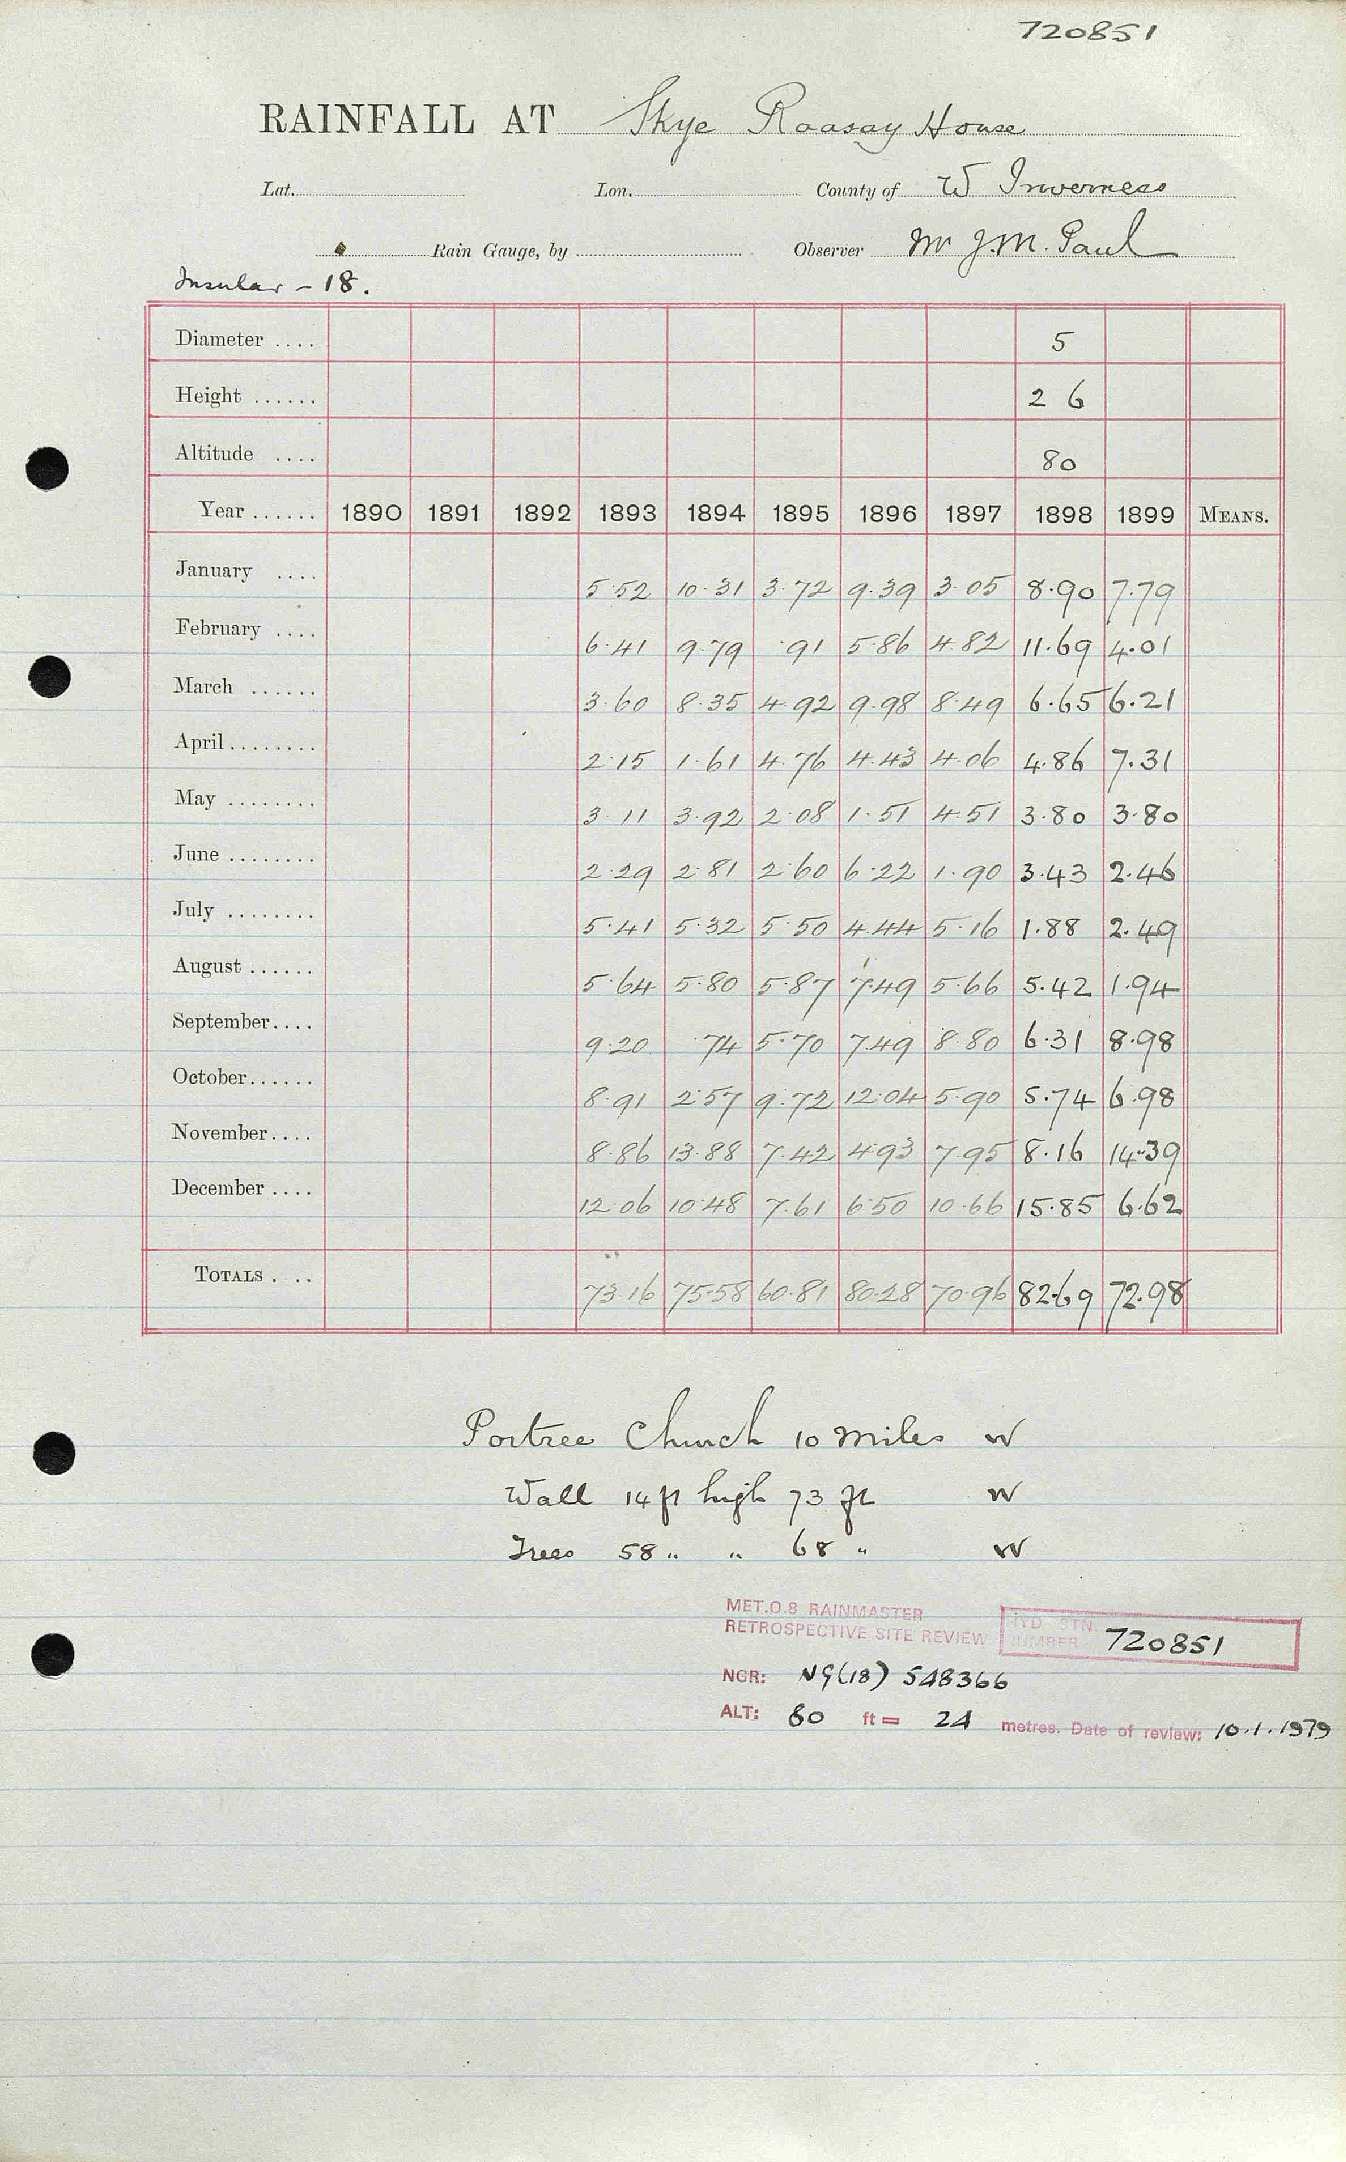 720851
RAINFALL AT Skye Raasay House
Lat. Lon. County of W Inverness
Rain Gauge, by Observer Mr J.M. Paul
Insular - 18.
Diameter .... 5
Height ...... 2 6
Altitude .... 80
Year ...... 1890 1891 1892 1893 1894 1895 1896 1897 1898 1899 MEANS.
January .... 5.52 10.31 3.72 9.39 3.05 8.90 7.79
February .... 6.41 9.79 .91 5.86 4.82 11.69 4.01
March ...... 3.60 8.35 4.92 9.98 8.49 6.65 6.21
April ........ 2.15 1.61 4.76 4.43 4.06 4.86 7.31
May ........ 3.11 3.92 2.08 1.51 4.51 3.80 3.80
June ........ 2.29 2.81 2.60 6.22 1.90 3.43 2.46
July ........ 5.41 5.32 5.50 4.44 5.16 1.88 2.49
August ...... 5.64 5.80 5.87 7.49 5.66 5.42 1.94
September .... 9.20 .74 5.70 7.49 8.80 6.31 8.98
October ...... 8.91 2.57 9.72 12.04 5.90 5.74 6.98
November .... 8.86 13.88 7.42 4.93 7.95 8.16 14.39
December .... 12.06 10.48 7.61 6.50 10.66 15.85 6.62
TOTALS . .. 73.16 75.58 60.81 80.28 70.96 82.69 72.98
Portree Church 10 miles W
Wall 14 ft high 73 ft W
Trees 58 " " 68 " W
MET.O.8 RAINMASTER
RETROSPECTIVE SITE REVIEW HYD STN. NUMBER 720851
NGR: NG(18) 548366
ALT: 80 ft = 24 metres. Date of review: 10.1.1979